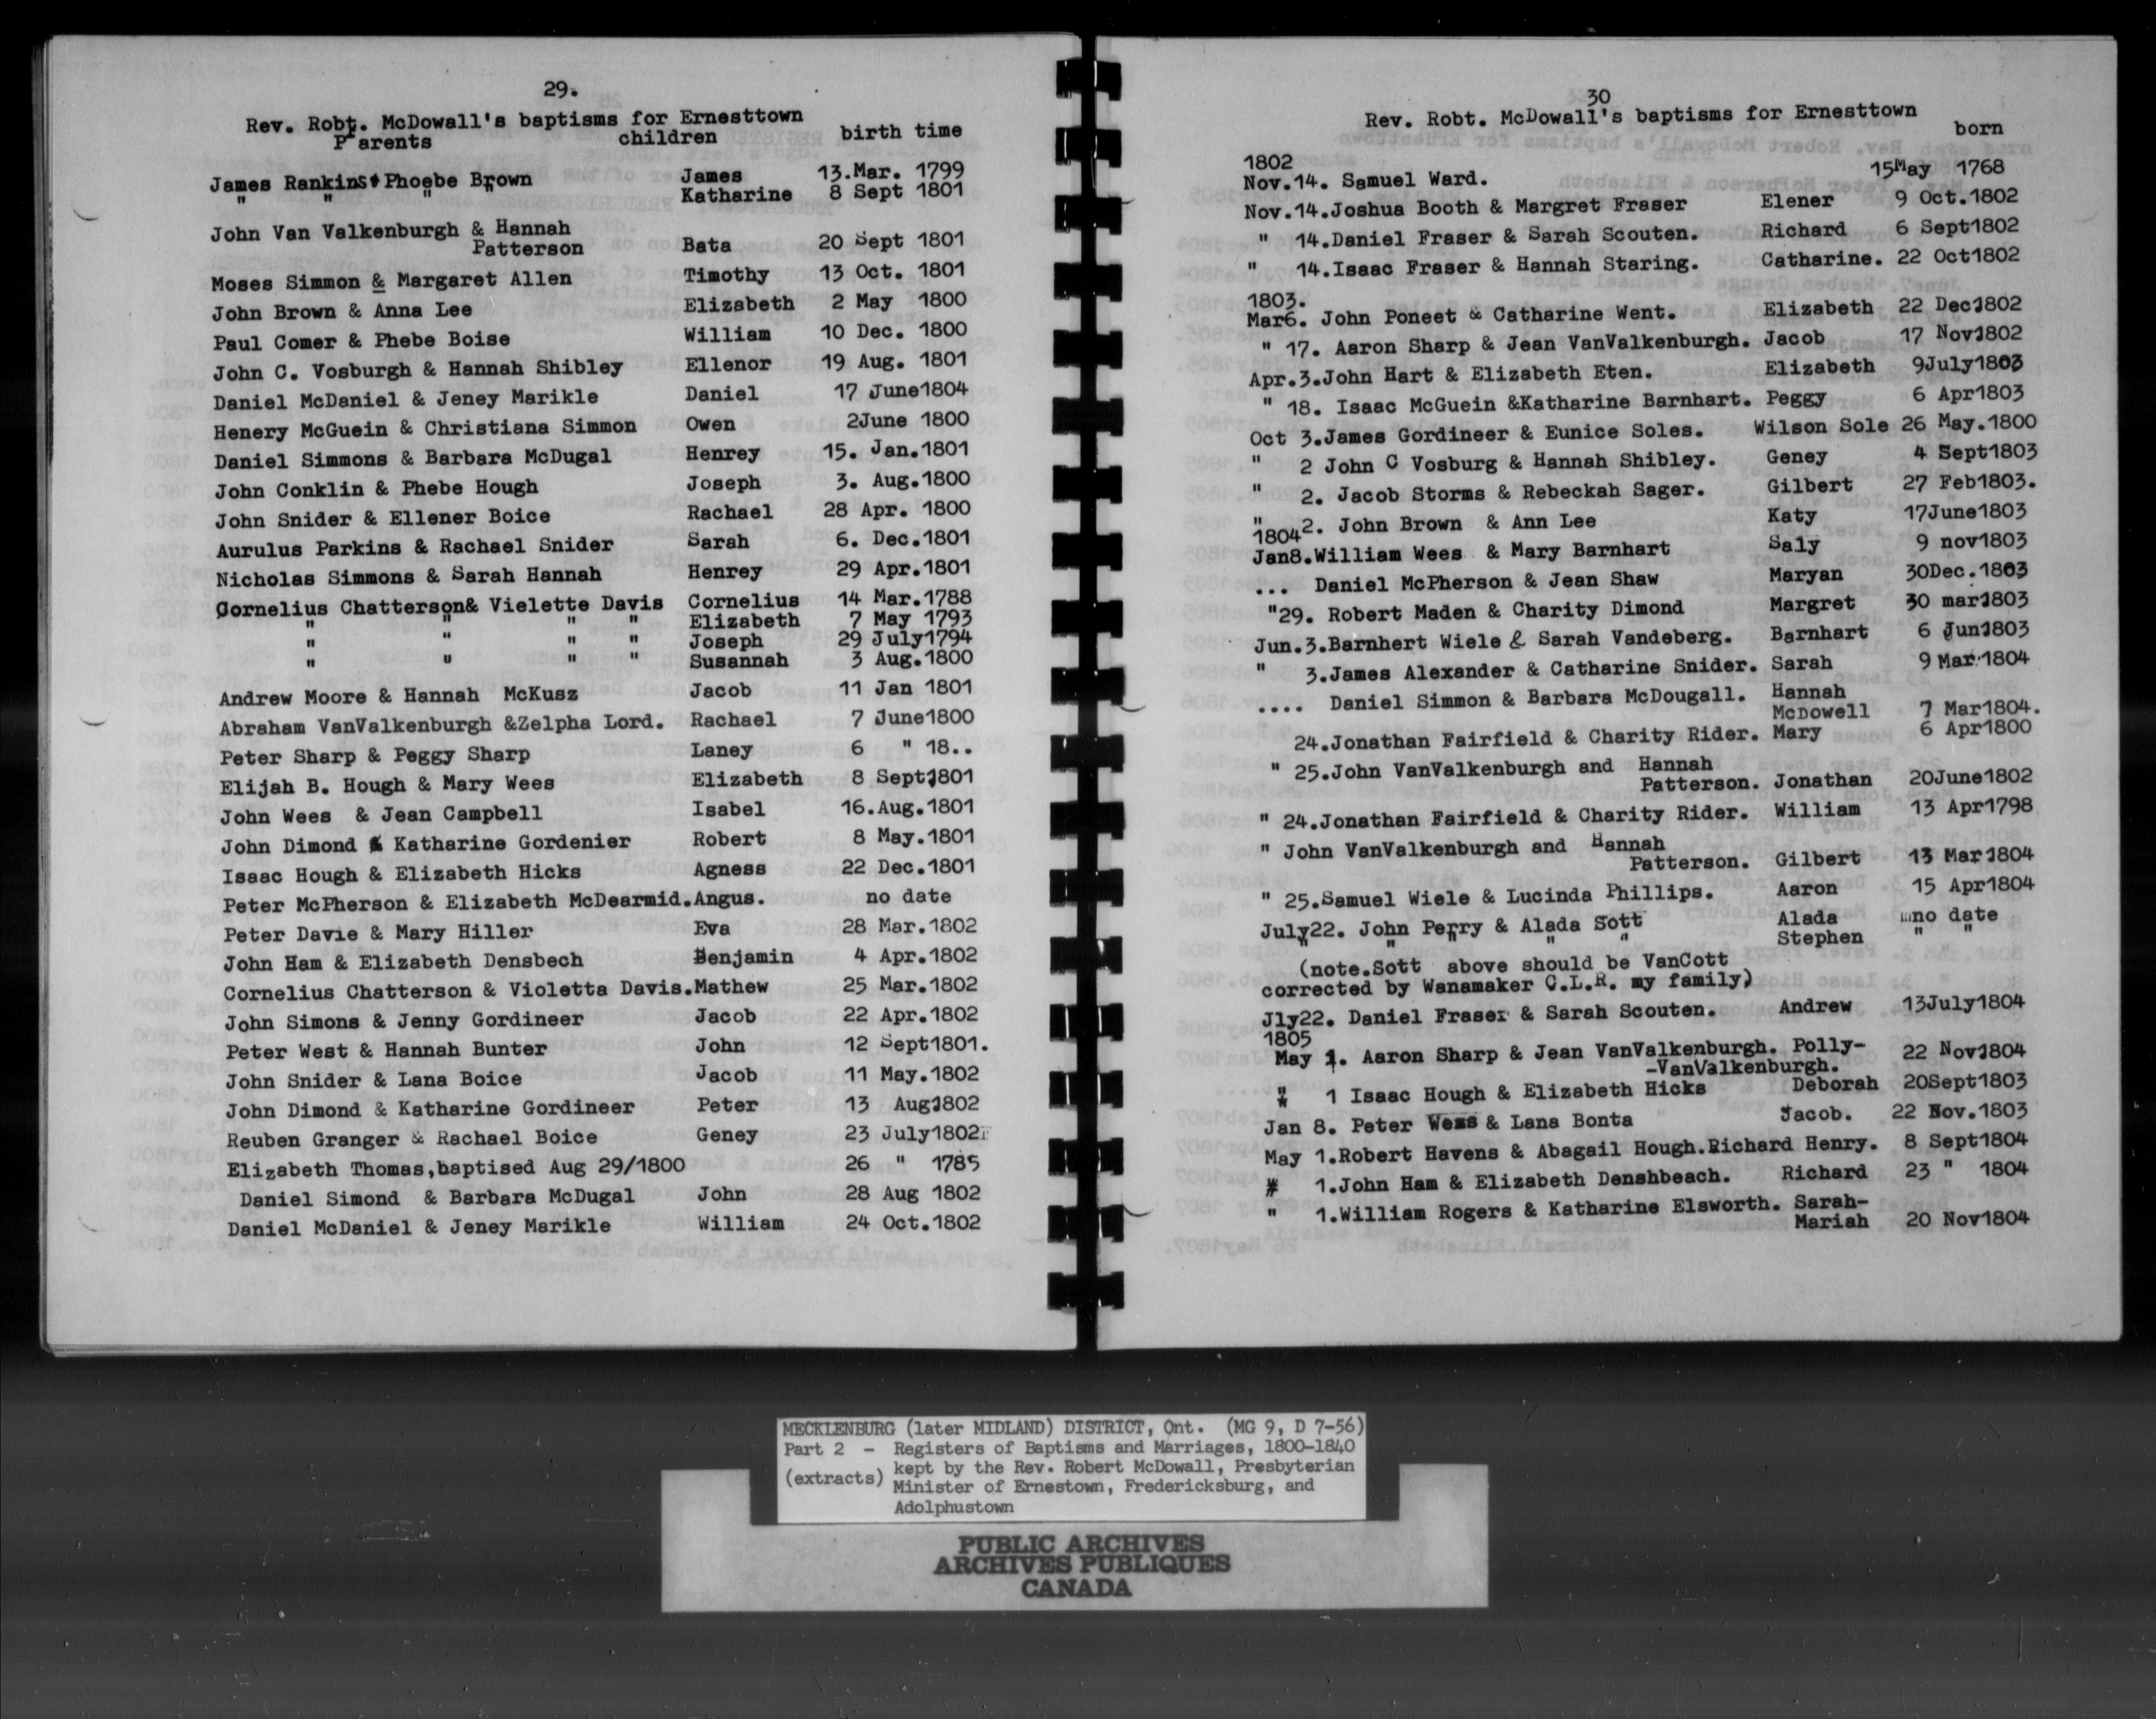 29.
Rev. Robt. McDowall's baptisms for Ernesttown
Parents children birth time
James Rankins & Phoebe Brown James 13.Mar. 1799
" " " Katharine 8 Sept 1801
John Van Valkenburgh & Hannah
Patterson Bata 20 Sept 1801
Moses Simmon & Margaret Allen Timothy 13 Oct. 1801
John Brown & Anna Lee Elizabeth 2 May 1800
Paul Comer & Phebe Boise William 10 Dec. 1800
John C. Vosburgh & Hannah Shibley Ellenor 19 Aug. 1801
Daniel McDaniel & Jeney Marikle Daniel 17 June1804
Henery McGuein & Christiana Simmon Owen 2June 1800
Daniel Simmons & Barbara McDugal Henrey 15. Jan.1801
John Conklin & Phebe Hough Joseph 3. Aug.1800
John Snider & Ellener Boice Rachael 28 Apr. 1800
Aurulus Parkins & Rachael Snider Sarah 6. Dec.1801
Nicholas Simmons & Sarah Hannah Henrey 29 Apr.1801
Cornelius Chatterson& Vielette Davis Cornelius 14 Mar.1788
" " " " Elizabeth 7 May 1793
" " " " Joseph 29 July1794
" " " " Susannah 3 Aug.1800
Andrew Moore & Hannah McKusz Jacob 11 Jan 1801
Abraham VanValkenburgh &Zelpha Lord. Rachael 7 June1800
Peter Sharp & Peggy Sharp Laney 6 " 18..
Elijah B. Hough & Mary Wees Elizabeth 8 Sept1801
John Wees & Jean Campbell Isabel 16.Aug.1801
John Dimond & Katharine Gordenier Robert 8 May.1801
Isaac Hough & Elizabeth Hicks Agness 22 Dec.1801
Peter McPherson & Elizabeth McDearmid.Angus. no date
Peter Davie & Mary Hiller Eva 28 Mar.1802
John Ham & Elizabeth Densbech Benjamin 4 Apr.1802
Cornelius Chatterson & Violetta Davis.Mathew 25 Mar.1802
John Simons & Jenny Gordineer Jacob 22 Apr.1802
Peter West & Hannah Bunter John 12 Sept1801.
John Snider & Lana Boice Jacob 11 May.1802
John Dimond & Katharine Gordineer Peter 13 Aug1802
Reuben Granger & Rachael Boice Geney 23 July1802
Elizabeth Thomas,baptised Aug 29/1800 26 " 1785
Daniel Simond & Barbara McDugal John 28 Aug 1802
Daniel McDaniel & Jeney Marikle William 24 Oct.1802
30
Rev. Robt. McDowall's baptisms for Ernesttown
born
1802
Nov.14. Samuel Ward. 15May 1768
Nov.14.Joshua Booth & Margret Fraser Elener 9 Oct.1802
" 14.Daniel Fraser & Sarah Scouten. Richard 6 Sept1802
" 14.Isaac Fraser & Hannah Staring. Catharine. 22 Oct1802
1803.
Mar6. John Poneet & Catharine Went. Elizabeth 22 Dec1802
" 17. Aaron Sharp & Jean VanValkenburgh. Jacob 17 Nov1802
Apr.3.John Hart & Elizabeth Eten. Elizabeth 9July1803
" 18. Isaac McGuein &Katharine Barnhart. Peggy 6 Apr1803
Oct 3.James Gordineer & Eunice Soles. Wilson Sole 26 May.1800
" 2 John C Vosburg & Hannah Shibley. Geney 4 Sept1803
" 2. Jacob Storms & Rebeckah Sager. Gilbert 27 Feb1803.
" 2. John Brown & Ann Lee Katy 17June1803
1804
Jan8.William Wees & Mary Barnhart Saly 9 nov1803
... Daniel McPherson & Jean Shaw Maryan 30Dec.1803
"29. Robert Maden & Charity Dimond Margret 30 mar1803
Jun.3.Barnhert Wiele & Sarah Vandeberg. Barnhart 6 Jun1803
" 3.James Alexander & Catharine Snider. Sarah 9 Mar.1804
.... Daniel Simmon & Barbara McDougall. Hannah
McDowell 7 Mar1804.
24.Jonathan Fairfield & Charity Rider. Mary 6 Apr1800
" 25.John VanValkenburgh and Hannah
Patterson. Jonathan 20June1802
" 24.Jonathan Fairfield & Charity Rider. William 13 Apr1798
" John VanValkenburgh and Hannah
Patterson. Gilbert 13 Mar1804
" 25.Samuel Wiele & Lucinda Phillips. Aaron 15 Apr1804
July22. John Perry & Alada Sott Alada no date
" " " " " Stephen " "
(note.Sott above should be VanCott
corrected by Wanamaker C.L.R. my family)
Jly22. Daniel Fraser & Sarah Scouten. Andrew 13July1804
1805
May 1. Aaron Sharp & Jean VanValkenburgh. Polly-
-VanValkenburgh. 22 Nov1804
" 1 Isaac Hough & Elizabeth Hicks Deborah 20Sept1803
Jan 8. Peter & Lana Bonta Jacob. 22 Nov.1803
May 1.Robert Havens & Abagail Hough.Richard Henry. 8 Sept1804
" 1.John Ham & Elizabeth Denshbeach. Richard 23 " 1804
" 1.William Rogers & Katharine Elsworth. Sarah-
Mariah 20 Nov1804
MECKLENBURG (later MIDLAND) DISTRICT, Ont. (MG 9, D 7-56)
Part 2 - Registers of Baptisms and Marriages, 1800-1840
(extracts) kept by the Rev. Robert McDowall, Presbyterian
Minister of Ernestown, Fredericksburg, and
Adolphustown
PUBLIC ARCHIVES
ARCHIVES PUBLIQUES
CANADA